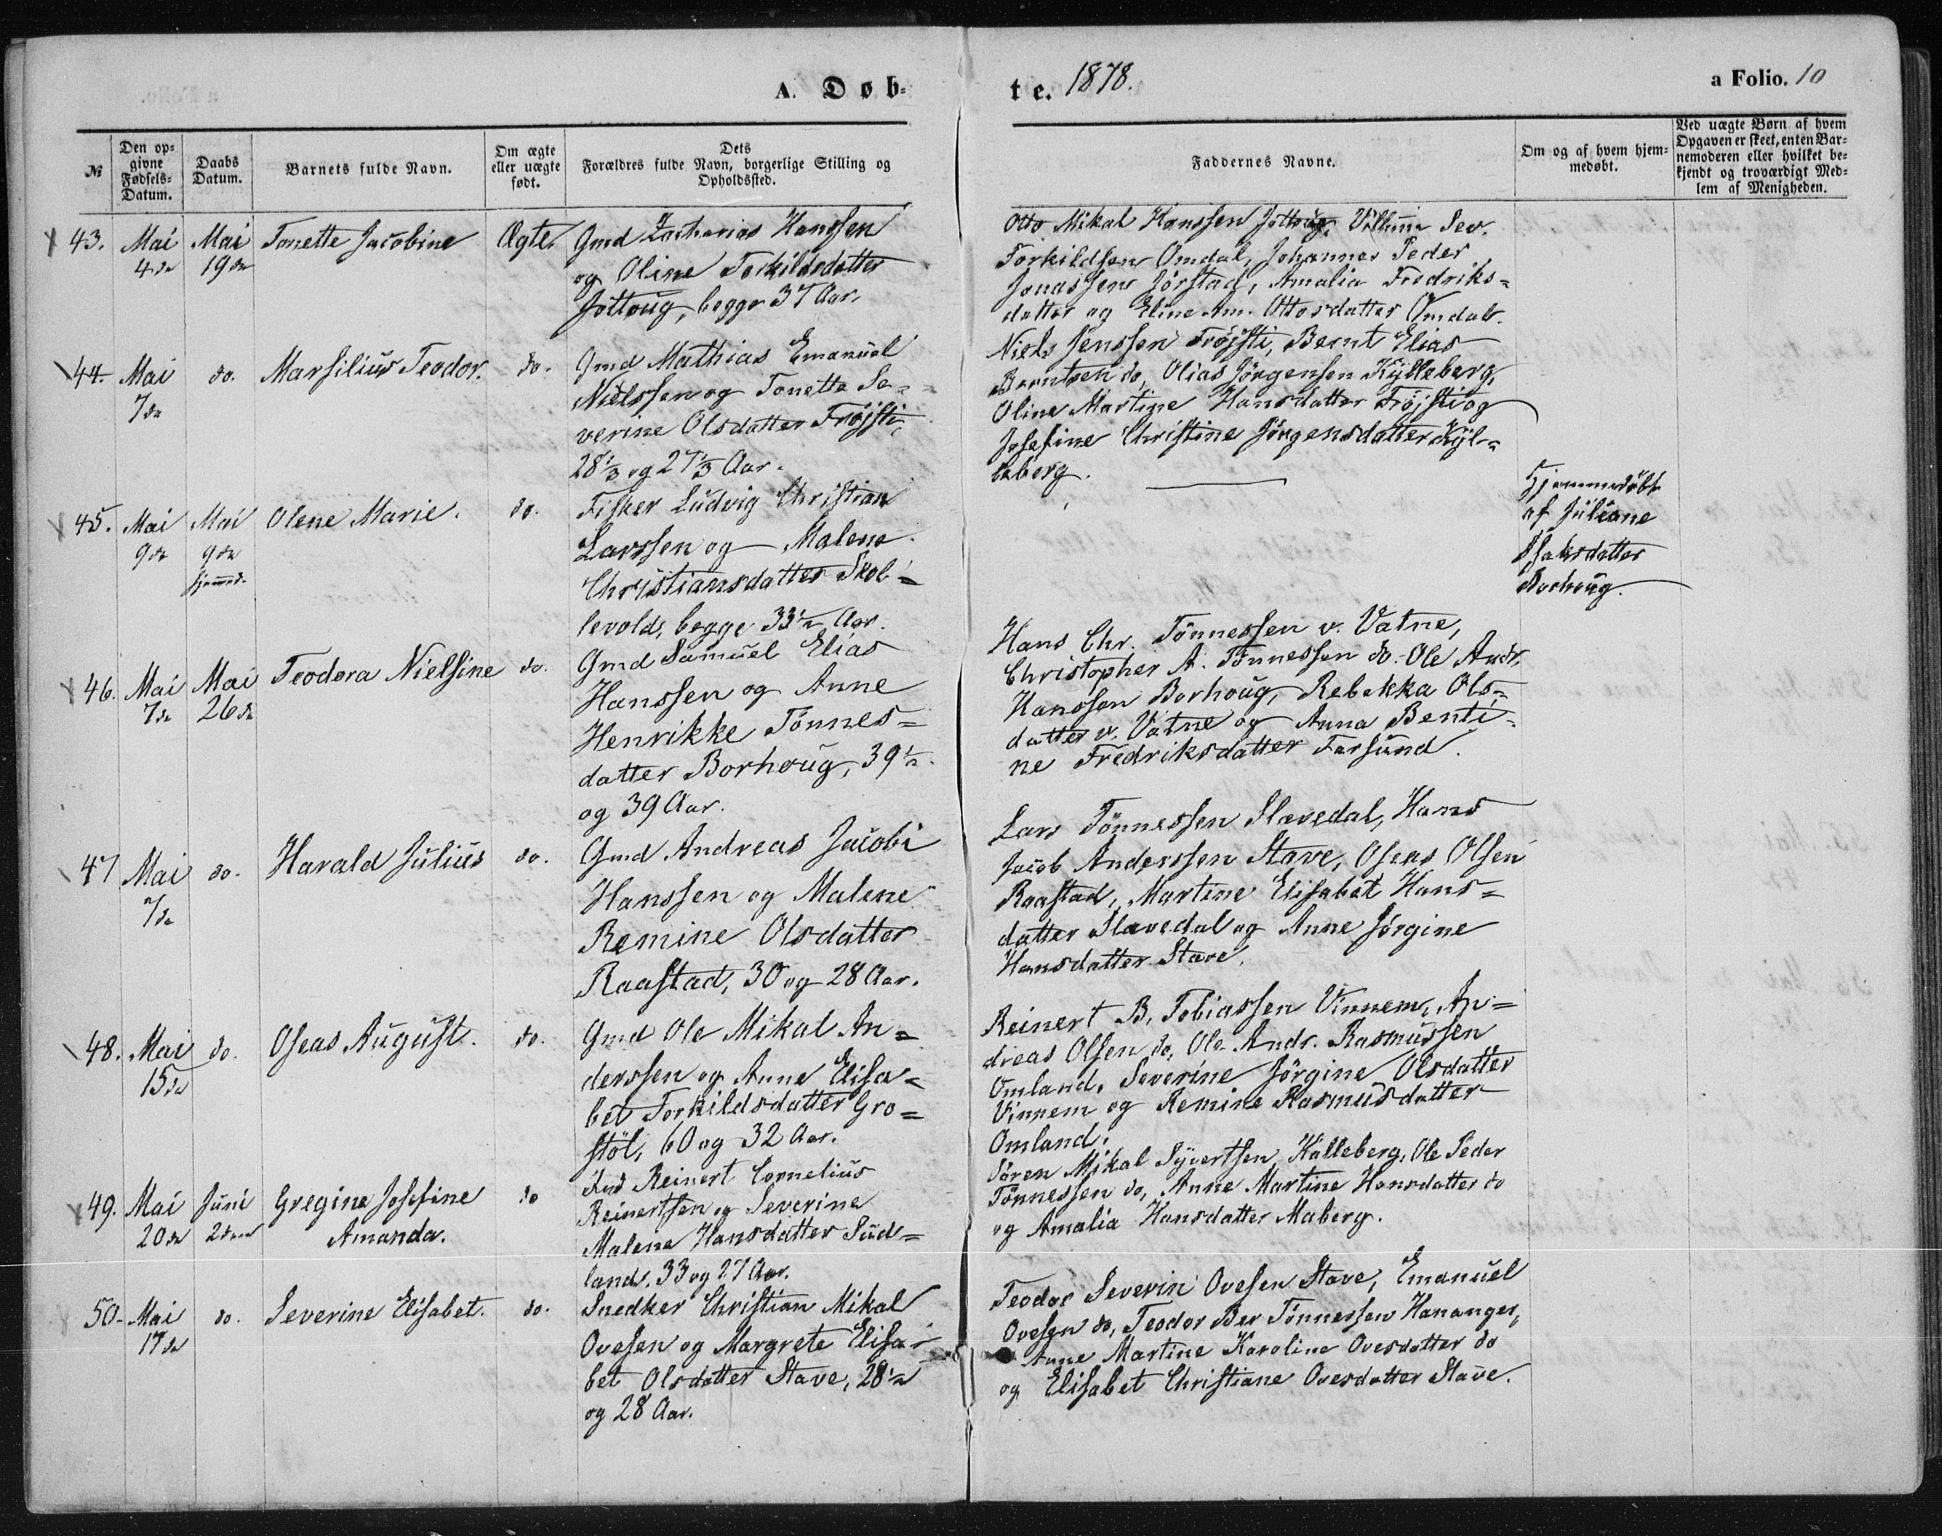 A. Døb-
te. 1878.
a Folio. 10
№
Den op-
givne
Fødsels-
Datum.
Daabs
Datum.
Barnets fulde Navn.
Om ægte
eller uægte
født.
Dets
Forældres fulde Navn, borgerlige Stilling og
Opholdssted.
Faddernes Navne.
Om og af hvem hjem-
medøbt.
Ved uægte Børn af hvem
Opgaven er skeet, enten Bar-
nemoderen eller hvilket be-
kjendt og troværdigt Med-
lem af Menigheden.
43. Mai 4de
Mai 19de
Tonette Jacobine
Ægte.
Gmd Zacharias Hanssen
og Oline Torkildsdatter
Jottoug, begge 37 Aar.
Otto Mikal Hanssen Jottoug, Villum Sev.
Torkildsen Omdal, Johannes Peder
Jonassen Jørstad, Amalia Fredriks-
datter og Eline Am. Ottosdatter Omdal.
44. Mai 7de
do.
Marsilius Teodor.
do.
Gmd Mathias Emanuel
Nielssen og Tonette Se-
verine Olsdatter Frøjsti,
28⅓ og 27⅓ Aar.
Niels Jenssen Frøjsti, Bernt Elias
Berntsen do, Olias Jørgensen Kjlleberg,
Oline Martine Hansdatter Frøjsti og
Josefine Christine Jørgensdatter Kjl-
leberg.
45. Mai 9de
Mai 9de
hjemmed.
Olene Marie.
do.
Fisker Ludvig Christian
Larssen og Malene
Christiansdatter Skol-
levold, begge 33½ Aar.
Hjemmedøbt
af Juliane
Isaksdatter
Borhoug.
46. Mai 7de
Mai 26de
Teodora Nielsine
do.
Gmd Samuel Elias
Hanssen og Anne
Henrikke Tønnes-
datter Borhoug, 39½
og 39 Aar.
Hans Chr. Tønnessen v. Vatne,
Christopher A. Tønnessen do. Ole Andr.
Hanssen Borhoug, Rebekka Ols-
datter v. Vatne og Anna Benti-
ne Fredriksdatter Farsund.
47 Mai 7de
do.
Harald Julius
do.
Gmd Andreas Jacobi
Hanssen og Malene
Remine Olsdatter
Raastad, 30 og 28 Aar.
Lars Tønnessen Slævedal, Hans
Jacob Anderssen Stave, Oseas Olsen
Raastad, Martine Elisabet Hans-
datter Slævedal og Anne Jørgine
Hansdatter Stave.
48. Mai 15de
do.
Oseas August.
do.
Gmd Ole Mikal An-
derssen og Anne Elisa-
bet Torkildsdatter Gro-
støl, 60 og 32 Aar.
Reinert B. Tobiassen Vinnem, An-
dreas Olsen do, Ole Andr. Rasmussen
Omland, Severine Jørgine Olsdatter
Vinnem og Remine Rasmusdatter
Omland.
49. Mai 20de
Juni 2den
Gregine Josefine
Amanda.
do
Ind Reinert Cornelius
Reinertsen og Severine
Malene Hansdatter Sud-
land. 33 og 27 Aar.
Søren Mikal Syvertsen Kalleberg, Ole Peder
Tønnessen do, Anne Martine Hansdatter do
og Amalia Hansdatter Maberg.
50. Mai 17de
do.
Severine Elisabet.
do.
Snedker Christian Mikal
Ovesen og Margrete Elisa-
bet Olsdatter Stave, 28½
og 28 Aar.
Teodor Severin Ovesen Stave, Emanuel
Ovesen do, Teodor Ber Tønnessen Hananger,
Anne Martine Karoline Ovesdatter do
og Elisabet Christiane Ovesdatter Stave.